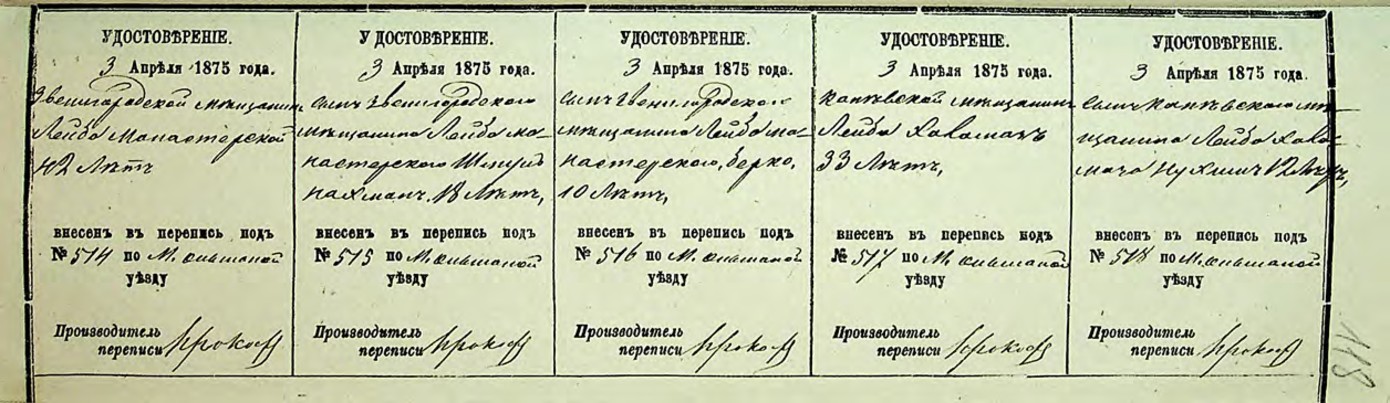 УДОСТОВѢРЕНІЕ.
3 Апрѣля 1875 года.
Звенигородской мѣщанинъ
Лейба Манастерской
42 Лѣтъ
внесенъ въ перепись подъ
№ 514 по М. Ольшаной
уѣзду
Производитель
переписи
УДОСТОВѢРЕНІЕ.
3 Апрѣля 1875 года.
Сынъ Звенигородского
мѣщанина Лейба Ма-
настерского
Нахманъ, 18 Лѣтъ,
внесенъ въ перепись подъ
№ 515 по М. Ольшаной
уѣзду
Производитель
переписи
УДОСТОВѢРЕНІЕ.
3 Апрѣля 1875 года.
Сынъ Звенигородского
мѣщанина Лейба Ма-
настерского, Берко,
10 Лѣтъ,
внесенъ въ перепись подъ
№ 516 по М. Ольшаной
уѣзду
Производитель
переписи
УДОСТОВѢРЕНІЕ.
3 Апрѣля 1875 года.
Каневской мѣщанинъ
Лейба
33 Лѣтъ,
внесенъ въ перепись подъ
№ 517 по М. Ольшаной
уѣзду
Производитель
переписи
УДОСТОВѢРЕНІЕ.
3 Апрѣля 1875 года.
Сынъ Каневского мѣ-
щанина Лейба
12 Лѣтъ,
внесенъ въ перепись подъ
№ 518 по М. Ольшаной
уѣзду
Производитель
переписи
118